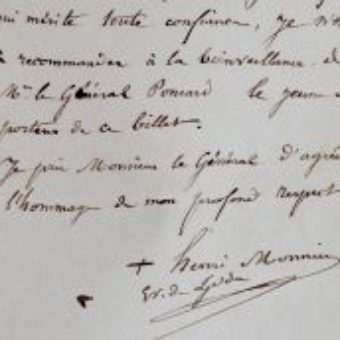 qui mérite toute confiance, je n'h
à recommander à la bienveillance d
Mr le Général Poncard le jeune
porteur de ce billet.
Je prie Monsieur le Général d'agré
l'hommage de mon profond respect
+ henri Monnier
Ev. de Lydda